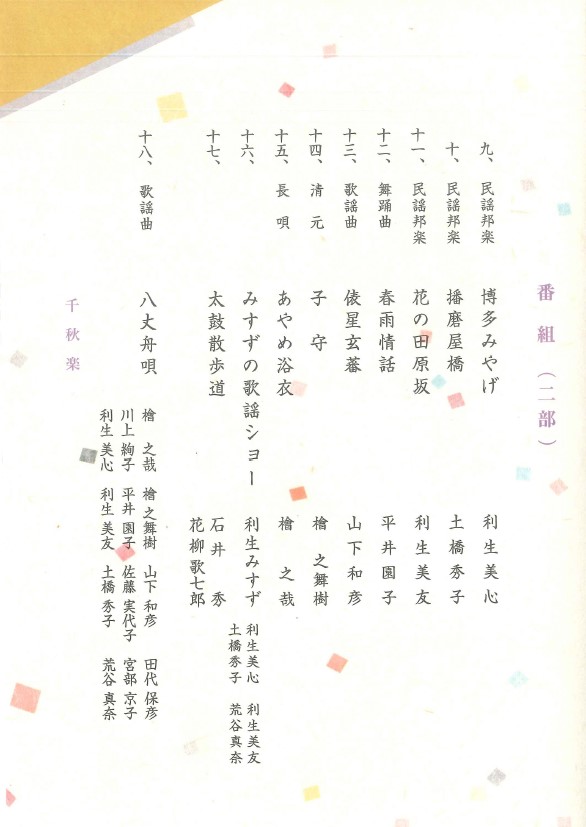 番組（二部）
九、民謡邦楽 博多みやげ 利生美心
十、民謡邦楽 播磨屋橋 土橋秀子
十一、民謡邦楽 花の田原坂 利生美友
十二、舞踊曲 春雨情話 平井園子
十三、歌謡曲 俵星玄蕃 山下和彦
十四、清元 子守 檜之舞樹
十五、長唄 あやめ浴衣 檜之哉
十六、 みすずの歌謡ショー 利生みすず 利生美心 利生美友
土橋秀子 荒谷真奈
十七、 太鼓散歩道 石井秀
花柳歌七郎
十八、歌謡曲 八丈舟唄 檜之哉 檜之舞樹 山下和彦 田代保彦
川上絢子 平井園子 佐藤実代子 宮部京子
利生美心 利生美友 土橋秀子 荒谷真奈
千秋楽